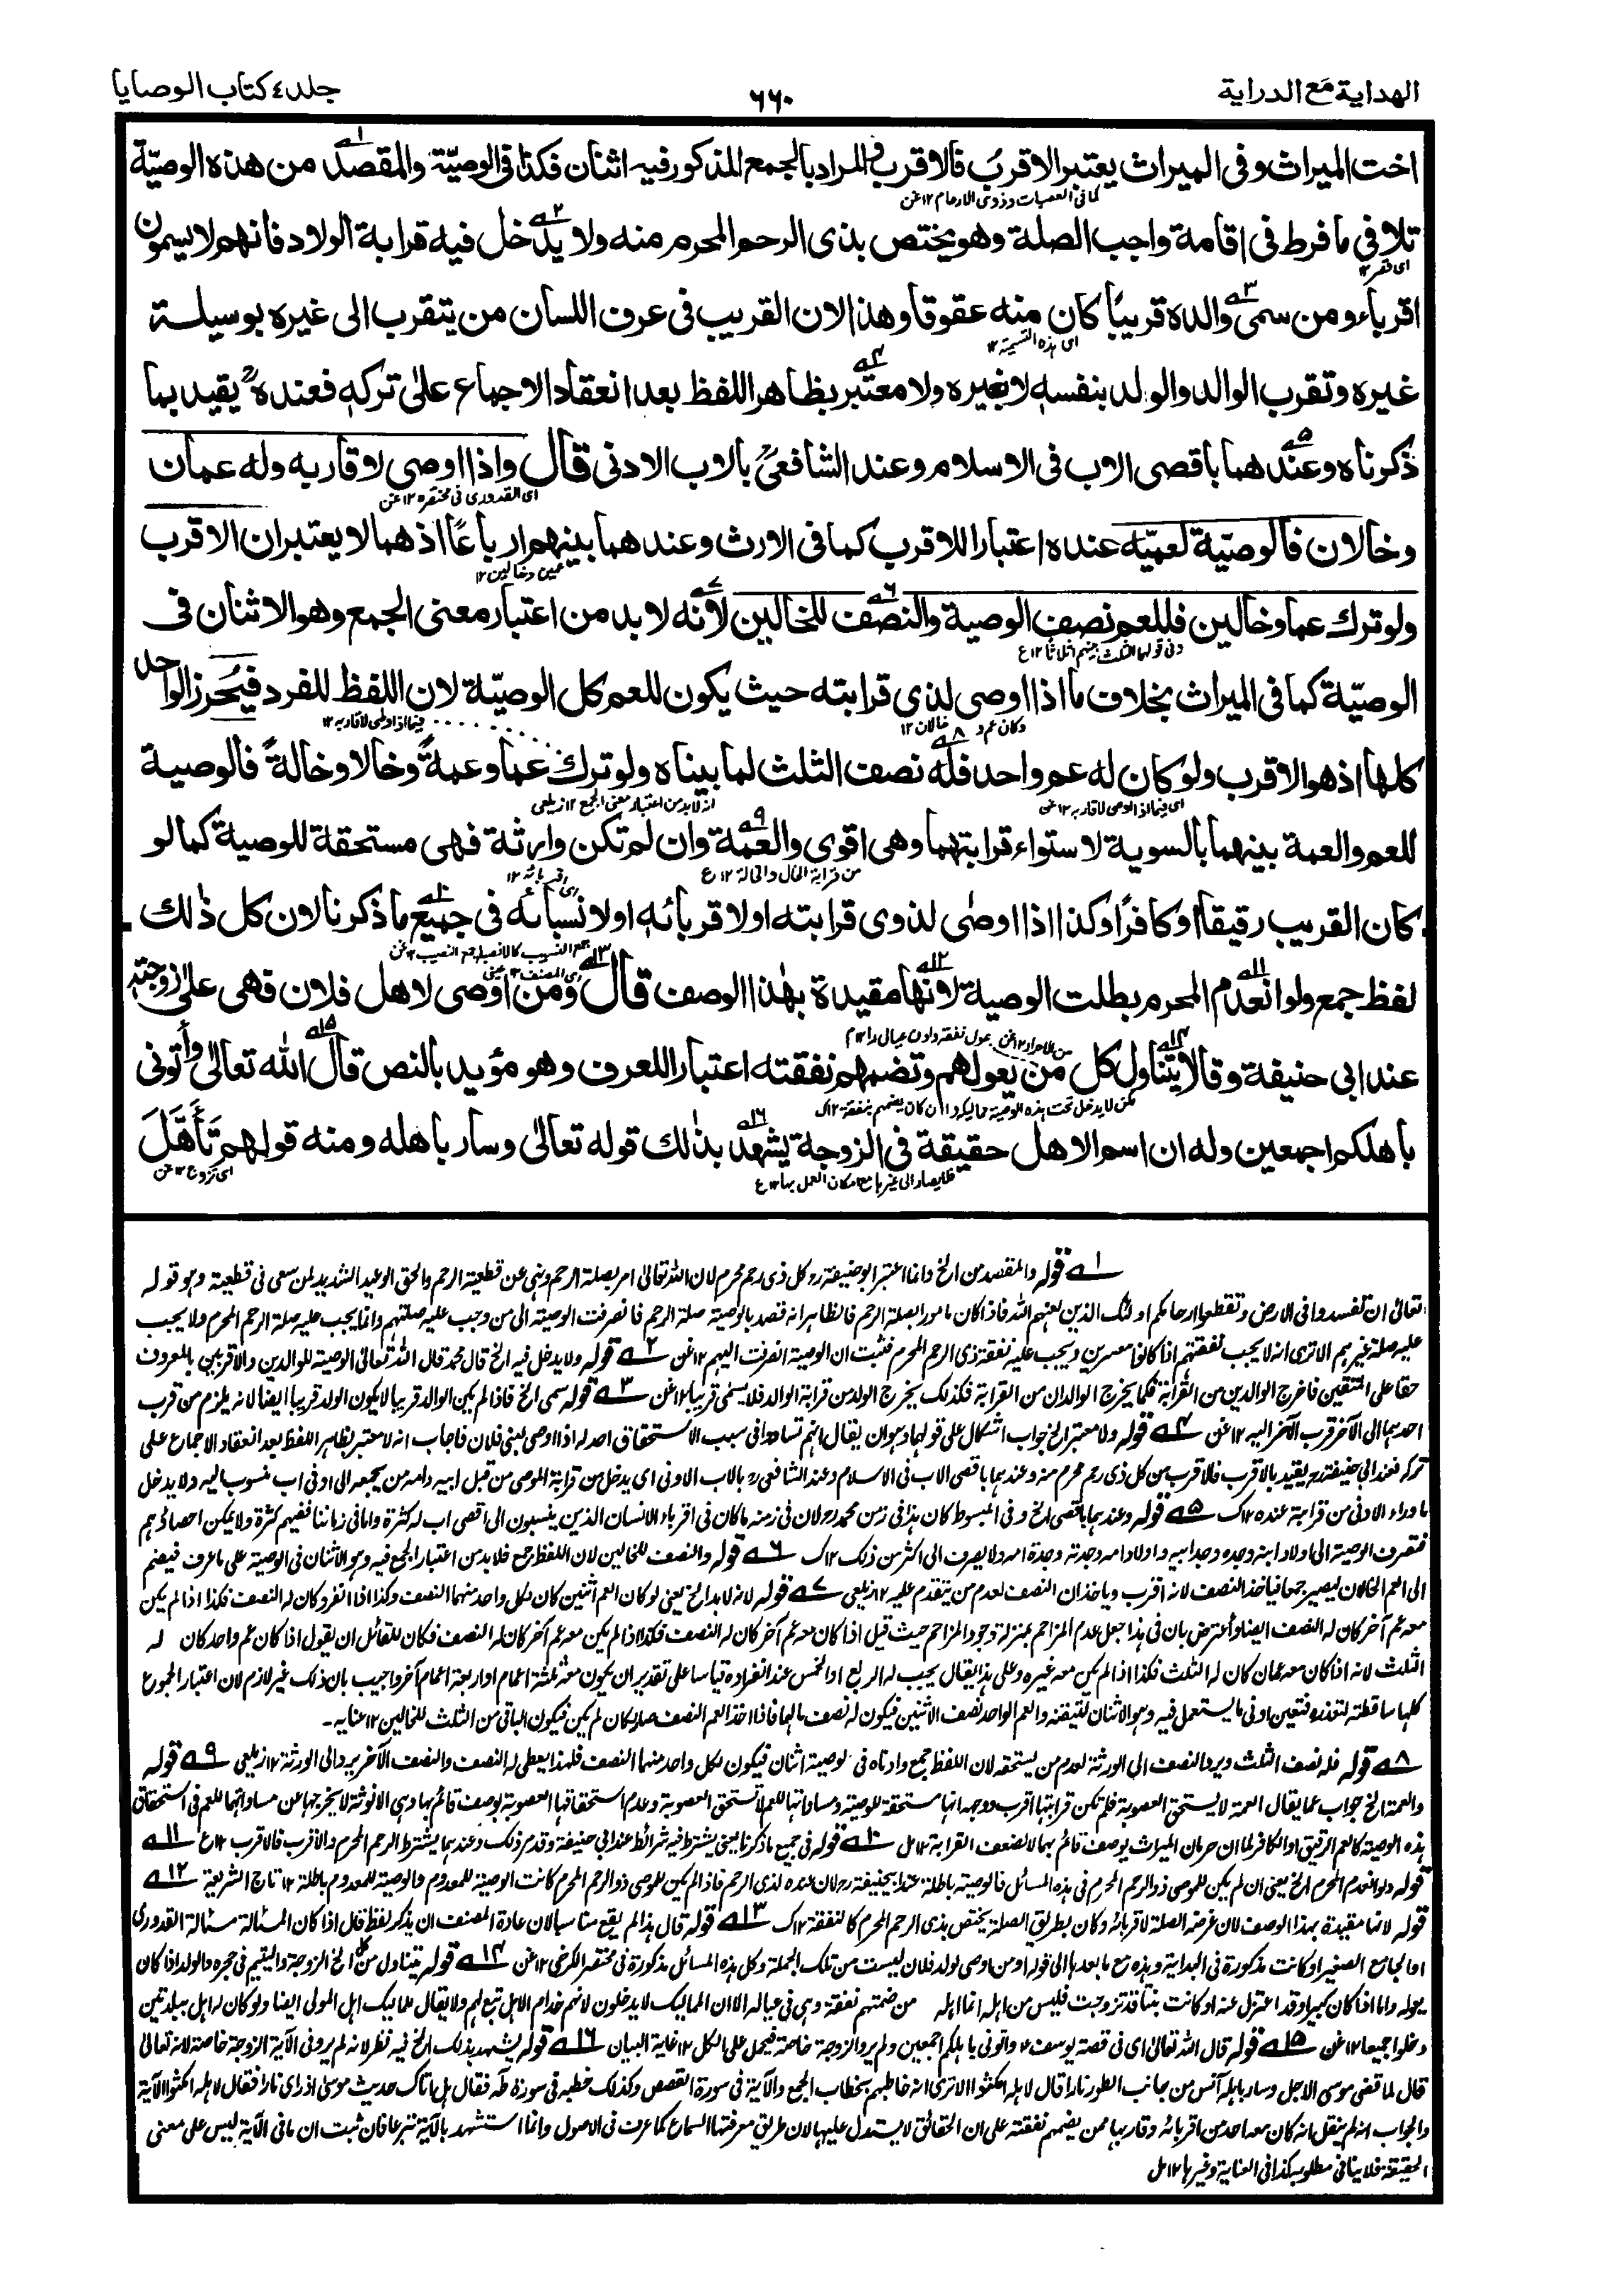 الهداية مع الدراية
٦٦٠
جلد٤ كتاب الوصايا
اخت الميراث وفى الميراث يعتبر الاقرب فالاقرب والمراد بالجمع المذكور فيه اثنان فكذا فى الوصيّة والمقصد من هذه الوصيّة
كما فى العصبات وذوى الارحام ١٢عن
تلافى ما فرط فى اقامة واجب الصلة وهو يختص بذى الرحم المحرم منه ولا يدخل فيه قرابة الولاد فانهم لا يسمون
اى قصر ١٢
اقرباء ومن سمى والده قريبًا كان منه عقوقا وهذا لان القريب فى عرف اللسان من يتقرب الى غيره بوسيلة
اى هذه التسمية ١٢
غيره وتقرب الوالد والولد بنفسه لا بغيره ولا معتبر بظاهر اللفظ بعد انعقاد الاجماع على تركه فعنده يقيد بما
ذكرناه وعندهما باقصى الاب فى الاسلام وعند الشافعىؒ بالاب الادنى قال واذا اوصى لاقاربه وله عمان
اى القدورى فى مختصره ١٢عن
وخالان فالوصيّة لعميّه عنده اعتبارا للاقرب كما فى الارث وعندهما بينهم ارباعًا اذ هما لا يعتبران الاقرب
عمين وخالين ١٢
ولو ترك عما وخالين فللعم نصف الوصية والنصف للخالين لانه لا بد من اعتبار معنى الجمع وهو الاثنان فى
وفى قولهما الثلث بينهم اثلاثا ١٢ع
الوصيّة كما فى الميراث بخلاف ما اذا اوصى لذى قرابته حيث يكون للعم كل الوصيّة لان اللفظ للفرد فيُحرز الواحد
وكان عم و خالان ١٢
فيما اذا اوصى لاقاربه ١٢
كلها اذ هو الاقرب ولو كان له عم واحد فله نصف الثلث لما بيناه ولو ترك عما وعمةً وخالا وخالةً فالوصية
اى فيما اذا اوصى لاقاربه ١٢عن
انه لا بد من اعتبار معنى الجمع ١٢زيلعى
للعم والعمة بينهما بالسوية لاستواء قرابتهما وهى اقوى والعمة وان لم تكن وارثة فهى مستحقة للوصية كما لو
من قرابة الخال والخالة ١٢ ع
كان القريب رقيقا او كافرًا وكذا اذا اوصٰى لذوى قرابته او لاقربائه او لانسبائه فى جميع ما ذكرنا لان كل ذٰلك
جمع النسيب كالانصباء جمع النصيب ١٢عن
لفظ جمع ولو انعدم المحرم بطلت الوصية لانها مقيدة بهٰذا الوصف قال ومن اوصى لاهل فلان فهى على زوجته
اى المصنف ١٢ عينى
عند ابى حنيفة وقالا يتناول كل من يعولهم وتضمهم نفقته اعتبارا للعرف وهو مؤيد بالنص قال الله تعالىٰ وأتونى
باهلكم اجمعين وله ان اسم الاهل حقيقة فى الزوجة يشهد بذٰلك قوله تعالىٰ وسار باهله ومنه قولهم تَأَهَّلَ
فلا يصار الى غيرها مع امكان العمل بها ١٢ع
اى تزوج ١٢عن
١ قوله والمقصد من الخ وانما اعتبر ابو حنيفة رح كل ذى رحم محرم لان الله تعالىٰ امر بصلة الرحم ونهى عن قطيعة الرحم والحق الوعيد الشديد لمن سعى فى قطيعته وهو قوله
تعالىٰ ان تفسدوا فى الارض وتقطعوا ارحامكم اولئك الذين لعنهم الله فاذا كان مامورا بصلة الرحم فالظاهر انه قصد بالوصية صلة الرحم فانصرفت الوصية الى من وجب عليه صلتهم وانما يجب عليه صلة الرحم المحرم ولا يجب
عليه صلة غيرهم الا ترى انه لا يجب نفقتهم اذا كانوا معسرين ويجب عليه نفقة ذى الرحم المحرم فثبت ان الوصية انصرفت اليهم ١٢عن ٢ قوله ولا يدخل فيه الخ قال محمد قال الله تعالىٰ الوصية للوالدين والاقربين بالمعروف
حقا على المتقين فاخرج الوالدين من القرابة فكما يخرج الوالدان من القرابة فكذلك يخرج الولد من قرابة الوالد فلا يسمى قريبا ١٢عن ٣ قوله سمى الخ فاذا لم يكن الوالد قريبا لا يكون الولد قريبا ايضا لانه يلزم من قرب
احدهما الى الآخر قرب الآخر اليه ١٢عن ٤ قوله ولا معتبر الخ جواب اشكال على قولهما وهو ان يقال انهم تساووا فى سبب الاستحقاق اصله اذا اوصى لبنى فلان فاجاب انه لا معتبر بظاهر اللفظ بعد انعقاد الاجماع على
تركه فعند ابى حنيفة رح يقيد بالاقرب فالاقرب من كل ذى رحم محرم منه وعندهما باقصى الاب فى الاسلام وعند الشافعى رح بالاب الادنى اى يدخل من قرابة الموصى من قبل ابيه وامه من يجمعه الى ادنى اب منسوب اليه ولا يدخل
ما وراء الادنى من قرابته عنده ١٢ك ٥ قوله وعندهما باقصى الخ وفى المبسوط كان هذا فى زمن محمد رح لان فى زمنه ما كان فى اقرباء الانسان الذين ينسبون الى اقصى اب له كثرة واما فى زماننا ففيهم كثرة ولا يمكن احصاؤهم
فتصرف الوصية الى اولاد ابنه وجده وجد ابيه واولاد امه وجدته وجدة امه ولا يصرف الى اكثر من ذلك ١٢ك ٦ قوله والنصف للخالين لان اللفظ جمع فلا بد من اعتبار الجمع فيه وهو الاثنان فى الوصية على ما عرف فيضم
الى العم الخالان ليصير جمعا فياخذ النصف لانه اقرب وياخذان النصف لعدم من يتقدم عليه ١٢زيلعى ٧ قوله لانه لا بد الخ يعنى لو كان العم اثنين كان لكل واحد منهما النصف وكذا اذا انفرد كان له النصف فكذا اذا لم يكن
معه عم آخر كان له النصف ايضا واعترض بان فى هذا جعل عدم المزاحم بمنزلة وجود المزاحم حيث قيل اذا كان معه عم آخر كان له النصف فكذا اذا لم يكن معه عم آخر كان له النصف فكان للقائل ان يقول اذا كان عم واحد كان له
الثلث لانه اذا كان معه عمان كان له الثلث فكذا اذا لم يكن معه غيره وعلى هذا يقال يجب له الربع او الخمس عند انفراده قياسا على تقدير ان يكون معه ثلثة اعمام او اربعة اعمام آخر واجيب بان ذلك غير لازم لان اعتبار الجموع
كلها ساقطة لتعذره فتعين ادنى ما يستعمل فيه وهو الاثنان لتيقنه والعم الواحد نصف الاثنين فيكون له نصف مالهما فاذا اخذ العم النصف صار كان لم يكن فيكون الباقى من الثلث للخالين ١٢عنايه۔
٨ قوله فله نصف الثلث ويرد النصف الى الورثة لعدم من يستحقه لان اللفظ جمع وادناه فى الوصية اثنان فيكون لكل واحد منهما النصف فلهذا يعطى له النصف والنصف الآخر يرد الى الورثة ١٢زيلعى ٩ قوله
والعمة الخ جواب عما يقال العمة لا يستحق العصوبة فلم تكن قرابتها اقرب ووجهه انها مستحقة للوصية ومساواتها للعم لا تستحق العصوبة وعدم استحقاقها العصوبة بوصف قائم بها وهى الانوثة لا يخرجها عن مساواتها للعم فى استحقاق
هذه الوصية كالعم الرقيق او الكافر لما ان حرمان الميراث بوصف قائم بهما لا لضعف القرابة ١٢مل ١٠ قوله فى جميع ما ذكرنا يعنى يشترط فيه شرائط عند ابى حنيفة وقد مر ذلك وعندهما يشترط الرحم المحرم والاقرب فالاقرب ١٢ع ١١
قوله ولو انعدم المحرم الخ يعنى ان لم يكن للموصى ذو الرحم المحرم فى هذه المسائل فالوصية باطلة عند ابى حنيفة رح لان عنده لذى الرحم فاذا لم يكن للموصى ذو الرحم المحرم كانت الوصية للمعدوم والوصية للمعدوم باطلة ١٢ تاج الشريعة ١٢
قوله لانها مقيدة بهذا الوصف لان غرضه الصلة لاقربائه وكان بطريق الصلة يختص بذى الرحم المحرم كالنفقة ١٢ك ١٣ قوله قال هذا لم يقع مناسبا لان عادة المصنف ان يذكر لفظ قال اذا كان المسألة مسألة القدورى
او الجامع الصغير او كانت مذكورة فى البداية وهذه مع ما بعدها الى قوله او من اوصى لولد فلان ليست من تلك الجملة وكل هذه المسائل مذكورة فى مختصر الكرخى ١٢عن ١٤ قوله يتناول من الخ الزوجة واليتيم فى حجره والولد اذا كان
يعوله واما اذا كان كبيرا وقد اعتزل عنه او كانت بنتا قد تزوجت فليس من اهله انما اهله من ضمتهم نفقة وهى فى عياله الا ان المماليك لا يدخلون لانهم خدام الاهل تبع لهم ولا يقال مماليك اهل المولى ايضا ولو كان له اهل ببلدتين
دخلوا جميعا ١٢عن ١٥ قوله قال الله تعالىٰ اى فى قصة يوسف ع واتونى باهلكم اجمعين ولم يرد الزوجة خاصة فيحمل على الكل ١٢غاية البيان ١٦ قوله يشهد بذلك الخ فيه نظر لانه لم يرد فى الآية الزوجة خاصة لانه تعالىٰ
قال لما قضى موسى الاجل وسار باهله آنس من جانب الطور نارا قال لاهله امكثوا الا ترى انه خاطبهم بخطاب الجمع والآية فى سورة القصص وكذلك خطبه فى سورة طه فقال هل اتاك حديث موسى اذ راى نارا فقال لاهله امكثوا الآية
والجواب انه لم ينقل انه كان معه احد من اقربائه وقاربها ممن يضمهم نفقته على ان الحقائق لا يستدل عليها لان طريق معرفتها السماع كما عرف فى الاصول وانما استشهد بالآية تبرعا فان ثبت ان ما فى الآية ليس على معنى
الحقيقة فلا ينافى مطلوبه كذا فى العناية وغيرها ١٢مل